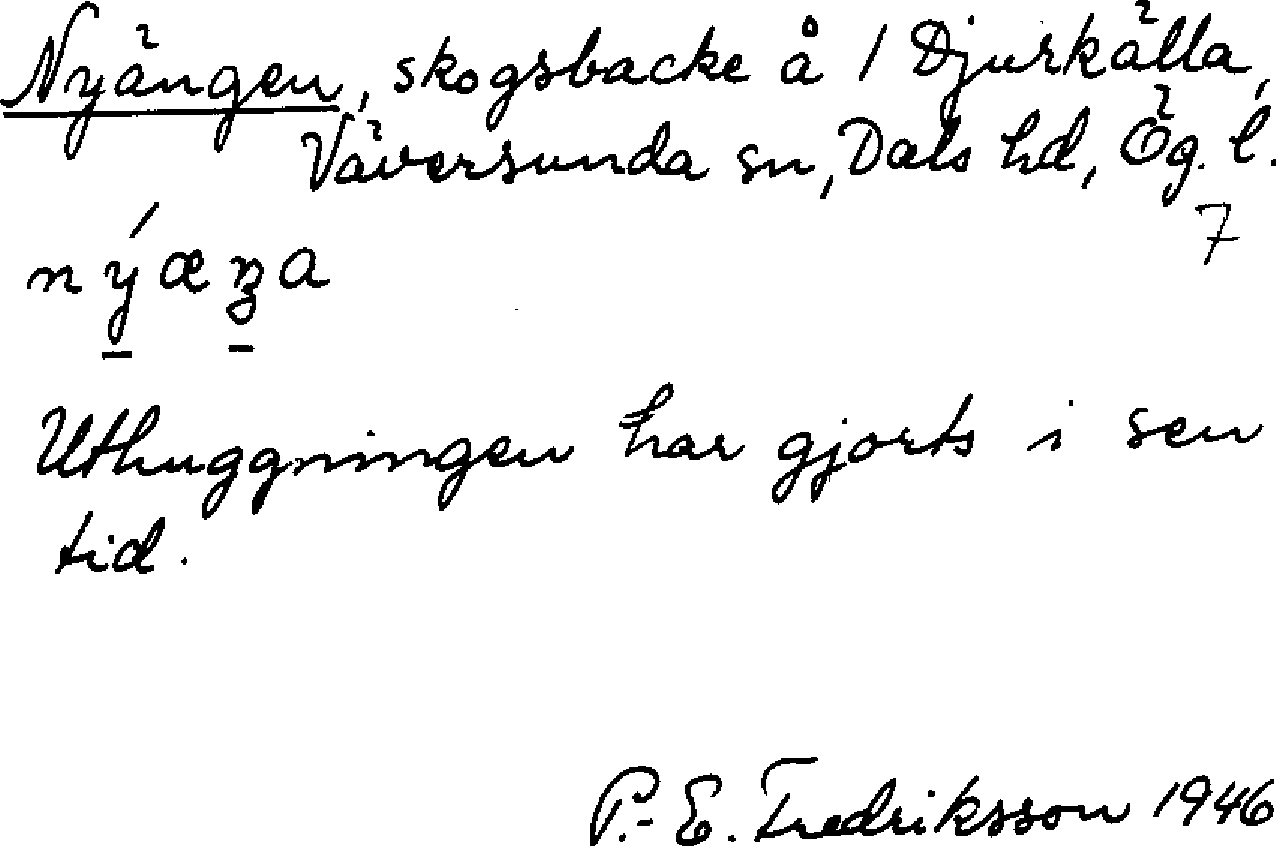 Nyängen, skogsbacke å 1 Djurkälla,
Väversunda sn, Dals hd, Ög. l.
7
nýæŋa
Uthuggningen har gjorts i sen
tid.
P.-E. Fredriksson 1946